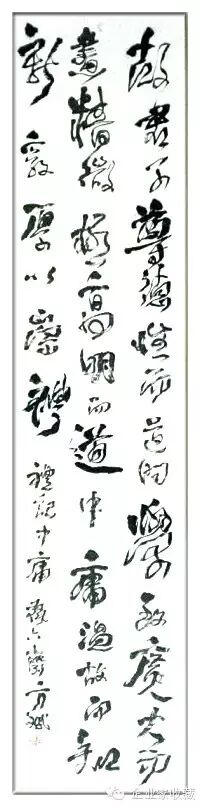 故君子尊德性而道問學致廣大而
盡精微極高明而道中庸溫故而知
新敦厚以崇禮
禮記中庸
企业家收藏